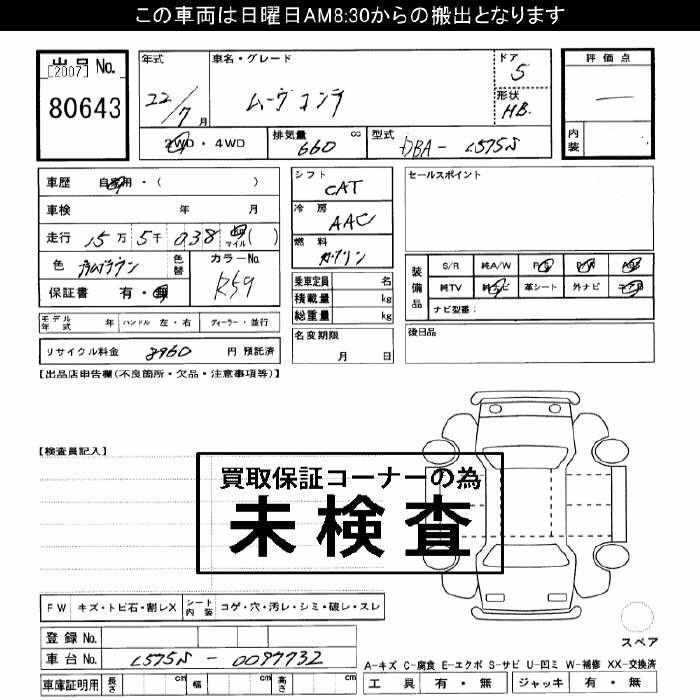 この車両は日曜日AM8:30からの搬出となります
出品 No.
[2007]
80643
年式 22/7月
車名・グレード ムーヴ コンテ
ドア 5
形状 HB
評価点 —
内装
2WD・4WD
排気量 660 cc
型式 DBA- L575S
車歴 自家用・( )
車検 年 月
走行 15万 5千 038 km マイル( )
色 プラムブラウン
色替
カラーNo. R59
保証書 有・無
シフト CAT
冷房 AAC
燃料 ガソリン
乗車定員 名
積載量 kg
総重量 kg
名変期限 月 日
セールスポイント
装備品
S/R 純A/W P/S P/W A/B
純TV 純ナビ 革シート 外ナビ
ナビ型番:
後日品
モデル年式 年 ハンドル 左・右 ディーラー・並行
リサイクル料金 8960 円 預託済
【出品店申告欄(不良箇所・欠品・注意事項等)】
【検査員記入】
買取保証コーナーの為
未検査
FW キズ・トビ石・割レX シート内装 コゲ・穴・汚レ・シミ・破レ・スレ
登録 No.
車台 No. L575S - 0097732
車庫証明用 長さ cm 幅 cm 高さ cm
スペア
A-キズ C-腐食 E-エクボ S-サビ U-凹ミ W-補修 XX-交換済
工具 有・無 ジャッキ 有・無